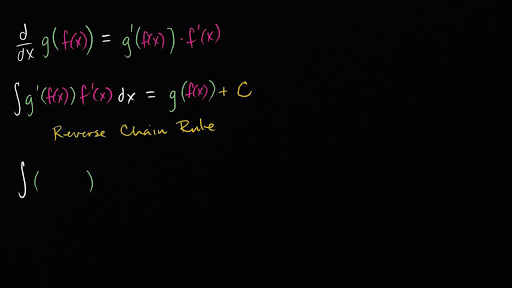 d/dx g(f(x)) = g'(f(x)) · f'(x)
∫g'(f(x)) f'(x) dx = g(f(x)) + C
Reverse Chain Rule
∫( )